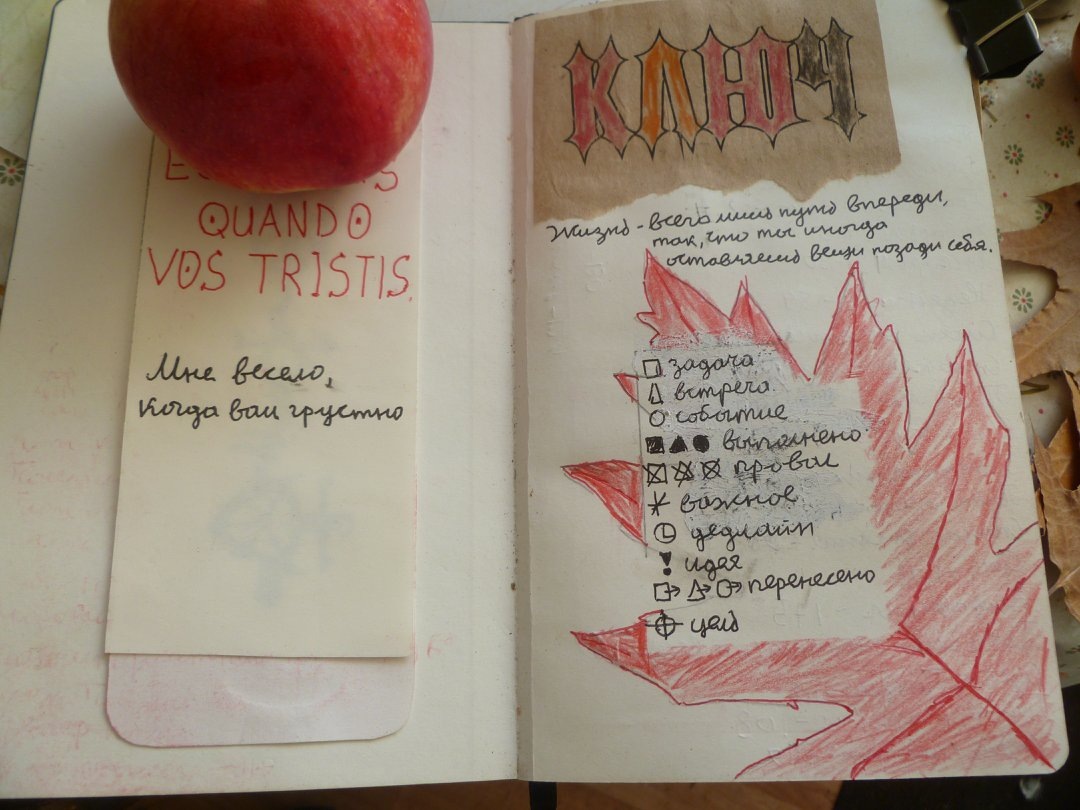 QUANDO
VOS TRISTIS.
Мне весело,
Когда вам грустно
КЛЮЧ
Жизнь - всего лишь путь впереди,
так, что ты иногда
оставляешь вещи позади себя.
□ задача
△ встреча
○ событие
■▲● выполнено
провал
* важное
дедлайн
! идея
□→ △→ ○→ перенесено
цель